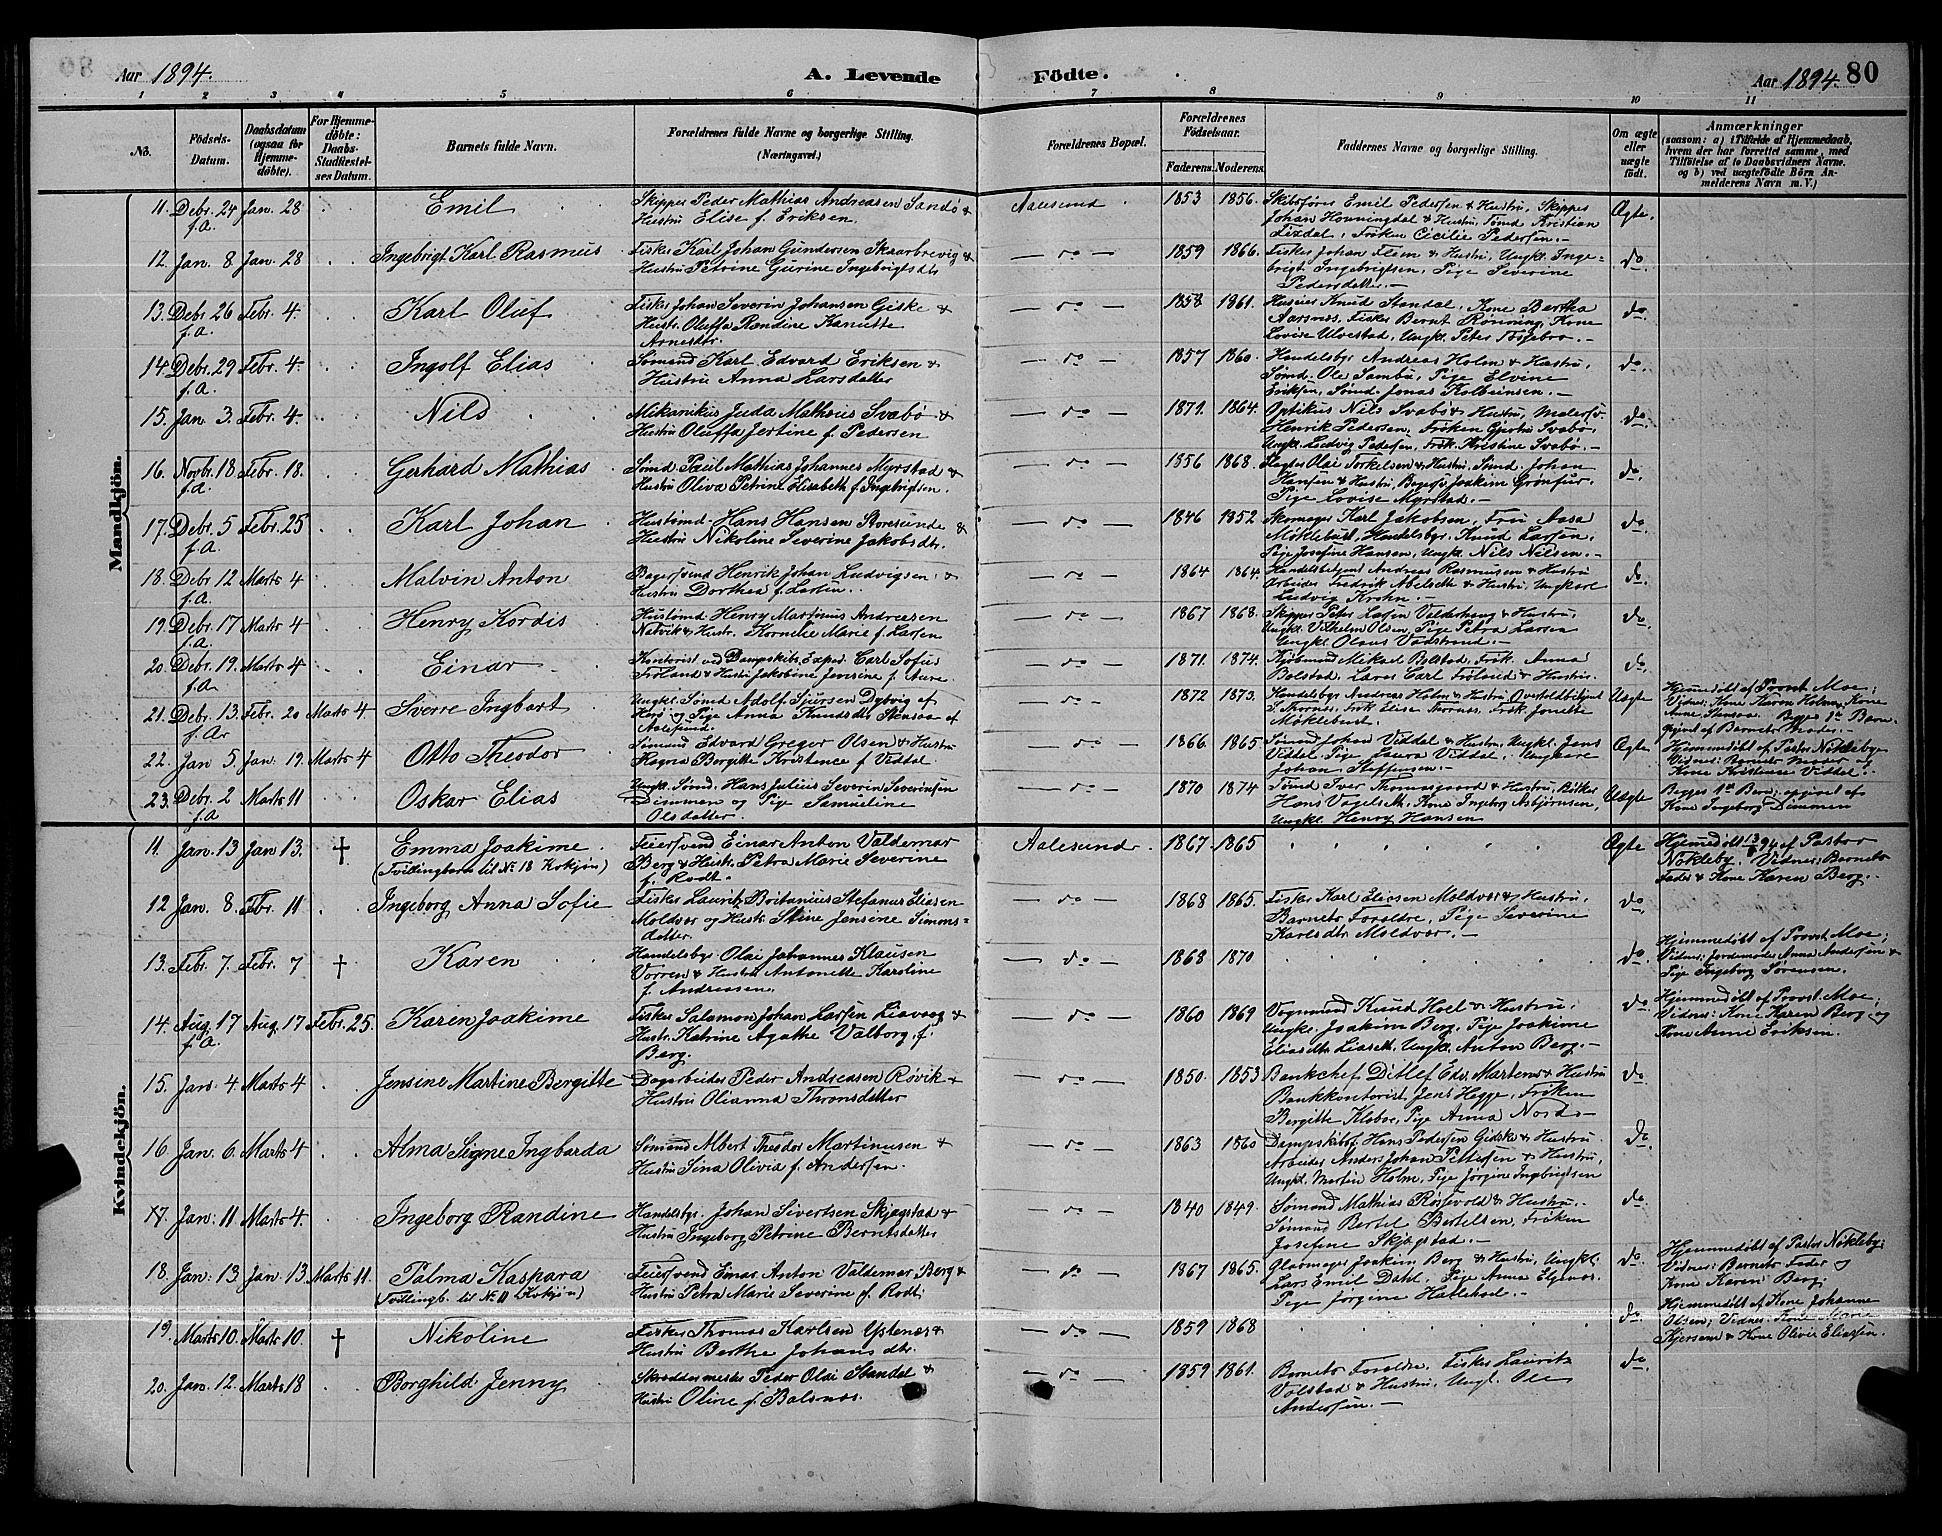 Aar 1894.
A. Levende Födte.
Aar 1894. 80
1 2 3 4 5 6 7 8 9 10 11
No.
Födsels-Datum.
Daabsdatum (ogsaa for Hjemmedöbte).
For Hjemmedøbte: Daabs-Stadfæstelses Datum.
Barnets fulde Navn.
Forældrenes fulde Navne og borgerlige Stilling. (Næringsvei.)
Forældrenes Bopæl.
Forældrenes Födselsaar.
Faderens. Moderens.
Faddernes Navne og borgerlige Stilling.
Om ægte eller uægte födt.
Anmærkninger
(saasom: a) i Tilfælde af Hjemmedaab, hvem der har forrettet samme, med Tilföielse af to Daabsvidners Navne. og b) ved uægtefödte Börn Anmelderens Navn m. V.)
Mandkjön.
11. Debr. 24 f.A. Jan. 28 Emil Skipper Peder Mathias Andreasen Sandø & Hustru Elise f. Eriksen. Aalesund 1853 1856. Skibsfører Emil Pedersen & Hustru, Skipper Johan Honningdal & Hustru, Sømd Kristian Lizdal, Frøken Cicilie Pedersen.- Ægte.
12. Jan. 8 Jan. 28 Ingebrigt Karl Rasmus Fisker Karl Johan Gundersen Skaarbrevig & Hustru Petrine Gurine Ingebrigtsdtr - do - 1859 1866. Fisker Johan Flem & Hustru, Ungk. Ingebrigt Ingebrigtsen, Pige Severine Pedersdatter.- do
13. Debr. 26 f.A. Febr. 4. Karl Oluf Fisker Johan Severin Johansen Giske & Hustr. Oluffa Randine Kanutte Arnesdtr. - do - 1858 1861. Husmer Knud Standal, Kone Bertha Aarsnes, Fisker Bernt Rønning, Kone Lovise Ulvestad, Ungk. Peter Fossebro.- do
14 Debr. 29 f.A. Febr. 4. Ingolf Elias Sømand Karl Edvard Eriksen & Hustru Anna Larsdatter - do - 1857 1860. Handelsbgr Andreas Holm & Hustru, Sømd. Ole Sambu, Pige Elvine Eriksen, Sømd Jonas Kolbeinsen.- do
15. Jan. 3. Febr. 4. Nils Mekanikus Juda Mathias Svabø & Hustru Oluffa Jertine f. Pedersen - do - 1871. 1864. Optikus Nils Svabø & Hustru, Malersv. Henrik Pedersen, Frøken Gjertru Svabø, Ungk. Ludvig Pedersen, Frøk. Kristine Svabø.- do
16. Novbr. 18 f.A. Febr. 18. Gerhard Mathias Sømd Paul Mathias Johannes Myrstad & Hustru Oliva Petrine Elisabeth f. Ingebrigtsen. - do - 1856 1868. Slagter Olai Torkelsen & Hustru, Sømd. Johan Hansen & Hustru, Bagersv. Joakim Grønfur, Pige Lovise Myrstad.- do
17. Debr. 5 f.A. Febr. 25 Karl Johan Hustømd. Hans Hansen Storesunde & Hustru Nikoline Severine Jakobsdtr. - do - 1846 1852 Skomager Karl Jakobsen, Fru Aasa Møklebust, Handelsbgr. Knud Larsen, Pige Josefine Hansen, Ungk. Nils Nilsen.- do
18. Debr. 12 f.A. Marts 4 Malvin Anton Bagersvend Henrik Johan Ludvigsen & Hustru Dorthea f. Larsen. - do - 1864 1864. Handelsbetjent Andreas Rasmusen & Hustru Arbeider Fredrik Abelseth & Hustru, Ungkarl Ludvig Krohn.- do
19. Debr. 17 f.A. Marts 4 Henry Kordis Hustømd Henry Martinus Andreesen Natvik & Hustr. Kornelie Marie f. Larsen - do - 1867 1868. Skipper Peter Larsen Velderhaug & Hustru, Ungk. Vilhelm Olsen, Pige Petra Larsen Ungk. Olaus Vadstrand.- do
20. Debr. 19. f.A. Marts 4 Einar Kontorist ved Dampskibs Exped. Carl Sofus Frøland & Hustru Jakobine Jensine f. Aure. - do - 1871. 1874. Kjøbmand Mikael Bolstad, Frøk. Anna Bolstad, Lærer Carl Frøland & Hustru. do
21. Debr. 13. f.Ar Febr. 20 Marts 4 Sverre Ingbart Ungk. Sømd Adolf Sjursen Dybvig af Herø og Pige Anna Knudsdt Stensaa af Aalesund. - do - 1872 1873. Handelsbgr Andreas Holm & Hustru, Overtoldbetjent S. Thornes, Frøk. Elise Thornes, Frøk. Jonette Møklebust.- Uægte Hjemmedøbt af Provst Moe; Vidner: Kone Karen Holm, Kone Anne Stensaa. Begges 1ste Barn opgivet af Barnets Moder.-
22. Jan 5. Jan. 19. Marts 4 Otto Theodor Sømand Edvard Greger Olsen & Hustru Ragna Bergitte Kristence f. Viddal - do - 1866. 1865 Sømd Johan Viddal & Hustru, Ungk. Jens Viddal, Pige Laura Viddal, Ungkarl Johan Steffensen.- Ægte Hjemmedøbt af Pastor Nökleby. Vidner: Barnets Moder og Kone Kristense Viddal.
23. Debr. 2 f.A Marts 11 Oskar Elias Ungk. Sømd. Hans Julius Severin Severinsen Dimmen og Pige Samueline Olsdatter. - do - 1870 1874 Sømd Iver Thomasgaard & Hustru, Bødker Hans Vogelseth, Kone Ingeborg Asbjørnsen, Ungk. Henry Hansen Uægte Begges 1ste Barn; opgivet af Kone Ingeborg Dimmen
Kvindekjön.
11. Jan. 13 Jan 13. † Emma Joakime (Tvillingbarn til No 18 Kvkjøn) Feiersvend Einar Anton Valdemar Berg & Hustr. Petra Marie Severine f. Rødt. Aalesund. 1867. 1865 Ægte Hjemmedøbt 13/1 94 af Pastor Nökleby. Vidner: Barnets Fader & Kone Karen Berg.
12 Jan. 8. Febr. 11 Ingeborg Anna Sofie Fisker Laurits Britanius Stefanus Eliesen Moldvær og Hustr. Stine Jensine Simonsdatter. - do - 1868 1865. Fisker Karl Eliesen Moldvær & Hustru, Barnets Forældre, Pige Severine Karlsdtr Moldvær.- do
13. Febr. 7. Febr. 7 † Karen Handelsbgr Olai Johannes Klausen Vorren & Hustru Antonette Karoline f. Andreasen. - do - 1868 1870 do. Hjemmedøbt af Provst Moe; Vidner: Jordemoder Anna Andersen & Pige Ingeborg Sørensen.
14. Aug. 17 f.A. Aug. 17 Febr. 25. Karen Joakime Fisker Salamon Johan Larsen Liavaag & Hustr. Katrine Agathe Valborg f. Berg. - do - 1860 1869 Vognmand Knud Hoel & Hustru, Ungk. Joakim Berg, Pige Joakime Eliasdtr Liaseth, Ungk. Anton Berg.- do Hjemmedøbt af Provst Moe; Vidner: Kone Karen Berg og Kone Anne Eriksen.
15. Jan. 4. Marts 4 Jensine Martine Bergitte Dagarbeider Peder Andreasen Røvik & Hustru Olianna Thronsdatter - do - 1850. 1853 Bankchef Ditlef Edv. Martens & Hustru Bankkontorist Jens Hegge, Frøken Bergitte Klobor, Pige Anna Nords- do
16. Jan. 6. Marts 4 Alma Signe Ingbarda Sømand Albert Theodor Martinusen & Hustru Sina Olivia f. Andersen. - do - 1863 1860 Dampskibsf. Hans Pedersen Gidske & Hustru. Arbeider Anders Johan Pettersen & Hustru, Ungk. Martin Holm, Pige Jørgine Ingbrigtsen do
17. Jan: 11 Marts 4. Ingeborg Randine Handelsbgr. Johan Sivertsen Skjegstad & Hustru Ingeborg Petrine Berntsdatter - do - 1840 1849. Sømand Mathias Røsevold & Hustru. Sømand Bertel Bertelsen, Frøken Josefine Skjegstad.- do
18. Jan: 13. Jan. 13. Marts 11. Palma Kaspara (Tvillingb. til No 11 Kvkjøn) Feiersvend Einar Anton Valdemar Berg & Hustru Petra Marie Severine f. Rødt; - do - 1867 1865. Gladmager Joakim Berg & Hustru, Ungk. Lars Emil Dahl, Pige Anna Elgenes. Pige Jørgine Hatlebod.- do. Hjemmedøbt af Pastor Nökleby; Vidner: Barnets Fader og Kone Karen Berg;
19. Marts 10. Marts 10. † Nikoline Fisker Thomas Karlsen Ystenes & Hustru Berthe Johans dtr. - do - 1859 1868 do. Hjemmedøbt af Kone Johanne Olsen; Vidner: Kone Marie Kjersem & Kone Olivie Eliassen.
20. Jan. 12. Marts 18 Borghild Jenny Skræddermester Peder Olai Standal & Hustru Oline f. Balsnes. - do - 1859 1861. Barnets Forældre, Fisker Laurits Volstad & Hustru, Ungk. Ole Andersen.- do